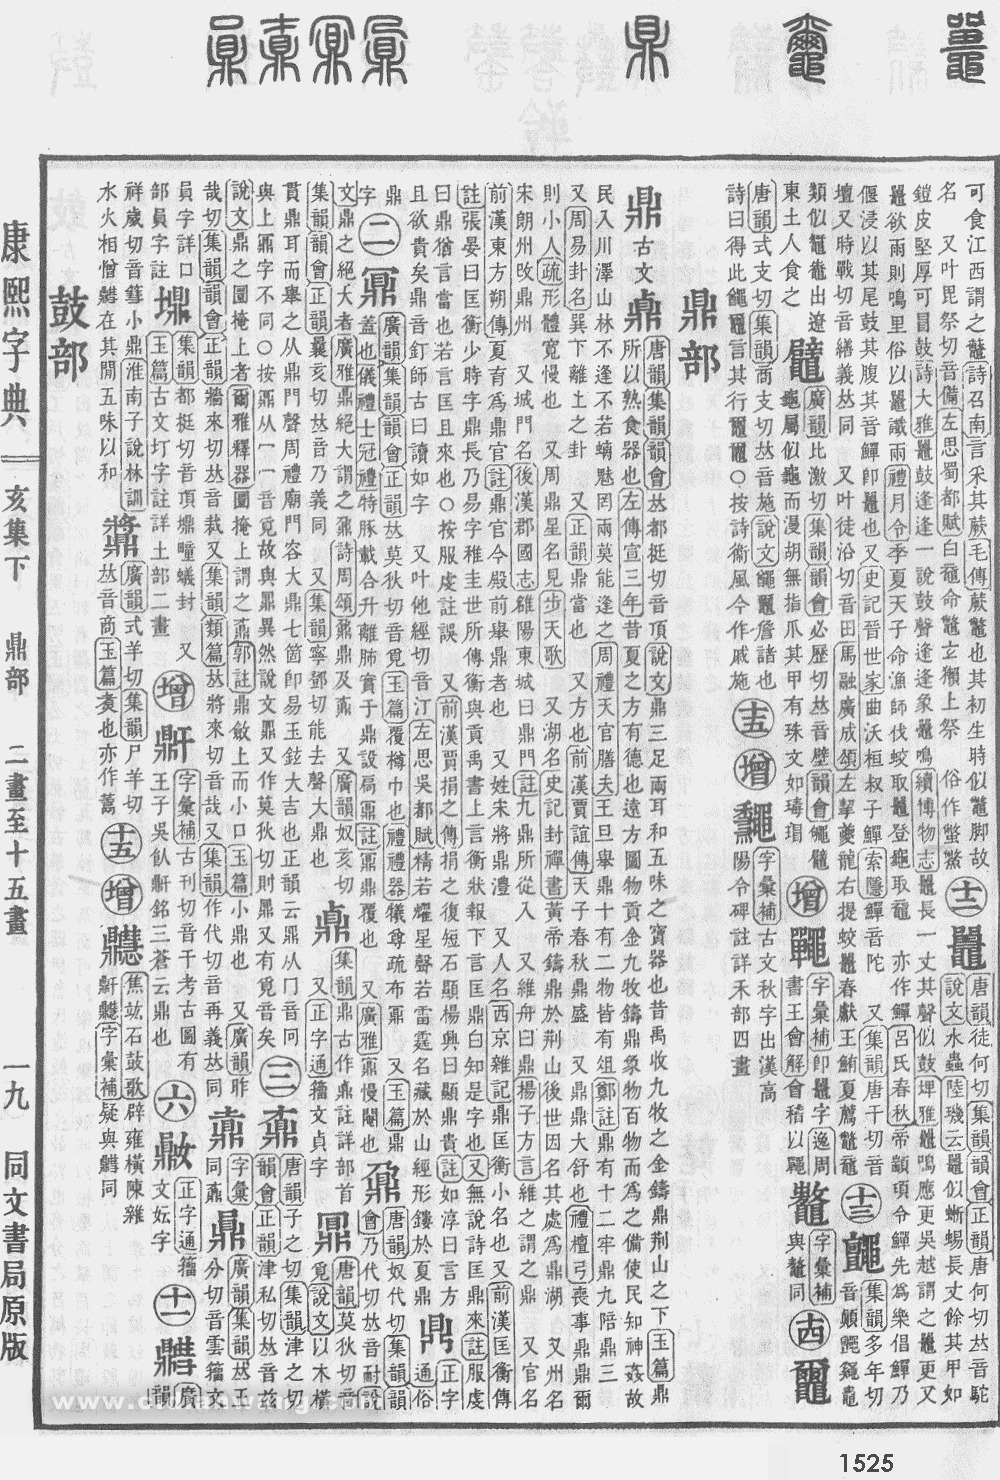 鼎
康熙字典
亥集下
鼎部
二畫至十五畫
一九
同文書局原版
可食江西謂之虌詩召南言采其蕨毛傳蕨虌也其初生時似鼈脚故
名 又叶毘祭切音獘左思蜀都賦白黿命鼈玄獺上祭 俗作鱉
鼉唐韻徒何切集韻韻會正韻唐何切𠀤音駝
說文水蟲陸璣云鼉似蜥蜴長丈餘其甲如
鎧皮堅厚可冒鼓詩大雅鼉鼓逢逢一說鼓聲逢逢象鼉鳴續博物志鼉長一丈其聲似鼓埤雅鼉鳴應更吳越謂之鼉更又
鼉欲雨則鳴里俗以鼉讖雨禮月令季夏天子命漁師伐蛟取鼉登龜取黿 亦作鱓呂氏春秋帝顓頊令鱓先爲樂倡鱓乃
偃浸以其尾鼓其腹其音鱓卽鼉也又史記晉世家曲沃桓叔子鱓索隱鱓音陀 又集韻唐干切音
壇又時戰切音繕義𠀤同 又叶徒沿切音田馬融廣成頌左挈夔龍右提蛟鼉春獻王鮪夏薦鼈黿
集韻多年切音顚
類似鼊鼄出遼東土人食之
鼊廣韻比激切集韻韻會必歷切𠀤音壁韻會鼊
龜屬似龜而漫胡無指爪其甲有珠文如瑇瑁
增
字彙補卽鼉字逸周
書王會解會稽以鼉
字彙補
與鼇同
唐韻式支切集韻商支切𠀤音施說文
詹諸也
詩曰得此 言其行 ○按詩衞風今作戚施
字彙補古文秋字出漢高
陽令碑註詳禾部四畫
鼎部
鼎古文
唐韻集韻韻會𠀤都挺切音頂說文鼎三足兩耳和五味之寶器也昔禹收九牧之金鑄鼎荆山之下玉篇鼎
所以熟食器也左傳宣三年昔夏之方有德也遠方圖物貢金九牧鑄鼎象物百物而爲之備使民知神姦故
民入川澤山林不逢不若螭魅罔兩莫能逢之周禮天官膳夫王日舉鼎十有二物皆有俎鄭註鼎十有二牢鼎九陪鼎三
又周易卦名巽下離上之卦 又正韻鼎當也 又方也前漢賈誼傳天子春秋鼎盛 又鼎鼎大舒也禮檀弓喪事鼎鼎爾
則小人疏形體寬慢也 又周鼎星名見步天歌 又湖名史記封禪書黃帝鑄鼎於荆山後世因名其處爲鼎湖 又州名
宋朗州攺鼎州 又城門名後漢郡國志雒陽東城曰鼎門註九鼎所從入 又維舟曰鼎揚子方言維之謂之鼎 又官名
前漢東方朔傳夏育爲鼎官註鼎官今殿前舉鼎者也 又姓宋將鼎澧 又人名西京雜記鼎匡衡小名也又前漢匡衡傳
註張晏曰匡衡少時字鼎長乃易字稚圭世所傳衡與貢禹書上言衡狀報下言匡鼎白知是字也又無說詩匡鼎來註服虔
曰鼎猶言當也若言匡且來也○按服虔註誤 又前漢賈捐之傳捐之復短石顯楊興曰顯鼎貴註如淳曰言方鼎
且欲貴矣鼎音釘師古曰讀如字 又叶他經切音汀左思吳都賦精若耀星聲若雷霆名藏於山經形鏤於夏鼎
正字通俗
鼎字
二鼏廣韻集韻韻會正韻𠀤莫狄切音覓玉篇覆樽巾也禮禮器犧尊疏布鼏 又玉篇鼎
蓋也儀禮士冠禮特豚載合升離肺實于鼎設扃鼏註鼏鼎覆也 又廣雅鼏慢闋也
鼐唐韻奴代切集韻韻
會乃代切𠀤音耐說
文鼎之絕大者廣雅鼎絕大謂之鼐詩周頌鼐鼎及鼒 又廣韻奴亥切
集韻韻會正韻曩亥切𠀤音乃義同 又集韻寧鄧切能去聲大鼎也
集韻鼎古作 註詳部首
又正字通籀文貞字
唐韻莫狄切音
覓說文以木橫
貫鼎耳而舉之从鼎冂聲周禮廟門容大鼎七箇卽易玉鉉大吉也正韻云鼏从冂音冋
與上鼏字不同○按鼏从一音覓故與鼏異然說文鼏又作莫狄切則鼏又有覓音矣
三鼒唐韻子之切集韻津之切
韻會正韻津私切𠀤音玆
說文鼎之圜掩上者爾雅釋器圜掩上謂之鼒郭註鼎斂上而小口玉篇小鼎也 又廣韻昨
哉切集韻韻會正韻牆來切𠀤音裁又集韻類篇𠀤將來切音哉又集韻作代切音再義𠀤同
字彙
同鼒
廣韻集韻𠀤王
分切音雲籀文
員字詳口
部員字註
集韻都挺切音頂㙀疃蟻封 又
玉篇古文圢字註詳土部二畫
增鼾字彙補古刊切音干考古圖有
王子吳飤鼾銘三蒼云鼎也
六
正字通籀
文妘字
十一䵻廣韻
祥歲切音篲小鼎淮南子說林訓
水火相憎䵻在其閒五味以和
廣韻式羊切集韻尸羊切
𠀤音商玉篇𤉷也亦作䵼
十五增
焦竑石鼓歌辟雍橫陳雜
鼾 字彙補疑與䵻同
鼓部
1525